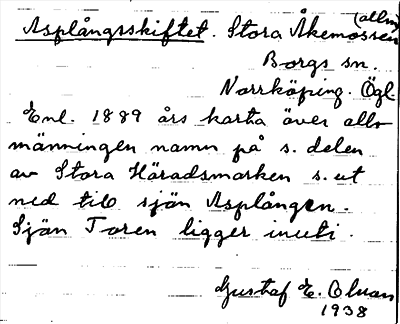 Asplångsskiftet. Stora Åkemossen (allm)
Borgs sn.
Norrköping. Ögl.
Enl. 1889 års karta över all-
männingen namn på s. delen
av Stora Häradsmarken s. ut
ned till sjön Asplången.
Sjön Toren ligger inuti.
Gustaf E. Olman
1938